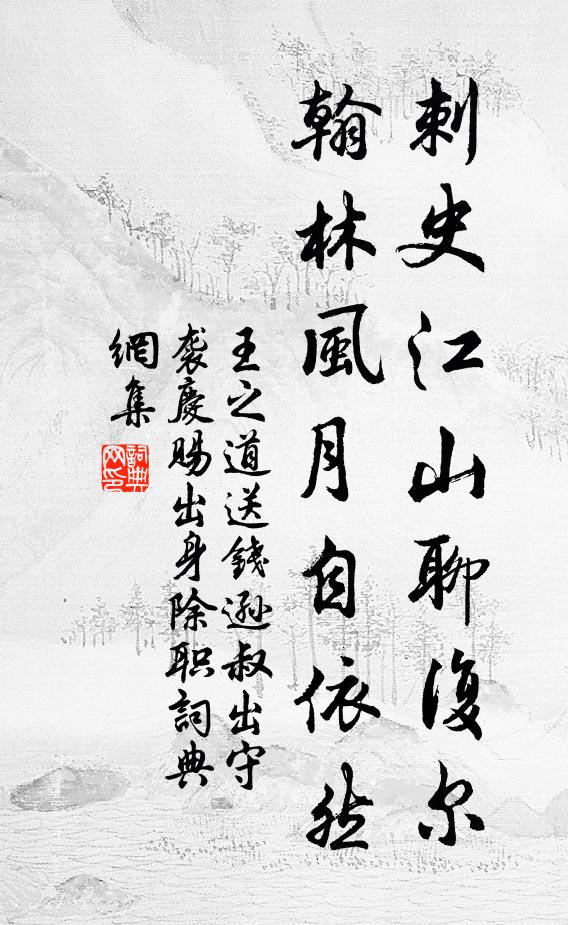 刺史江山聊復尔
翰林風月自依然
王之道送錢遜叔出守
袭慶賜出身除职詞典
網集
詞典网印